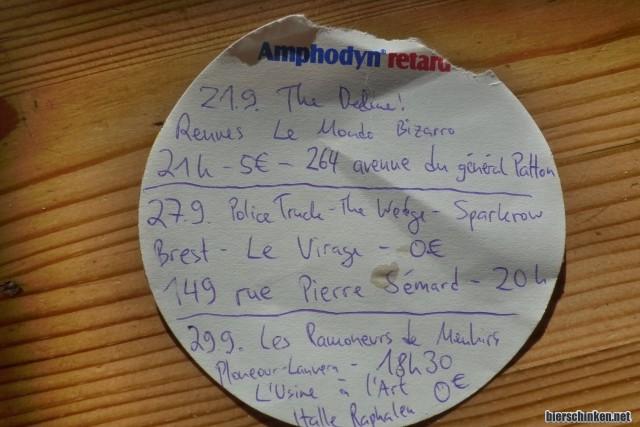 Amphodyn® retard
21.9. The Decline!
Rennes Le Mondo Bizarro
21h - 5€ - 264 avenue du général Patton
27.9. Police Truck - The Wedge - Sparkrow
Brest - Le Virage - 0€
149 rue Pierre Sémard - 20h
29.9. Les Ramoneurs de Menhirs
Ploneour-Lanvern - 18h30
L'Usine à l'Art 0€
Halle Raphalen
bierschinken.net